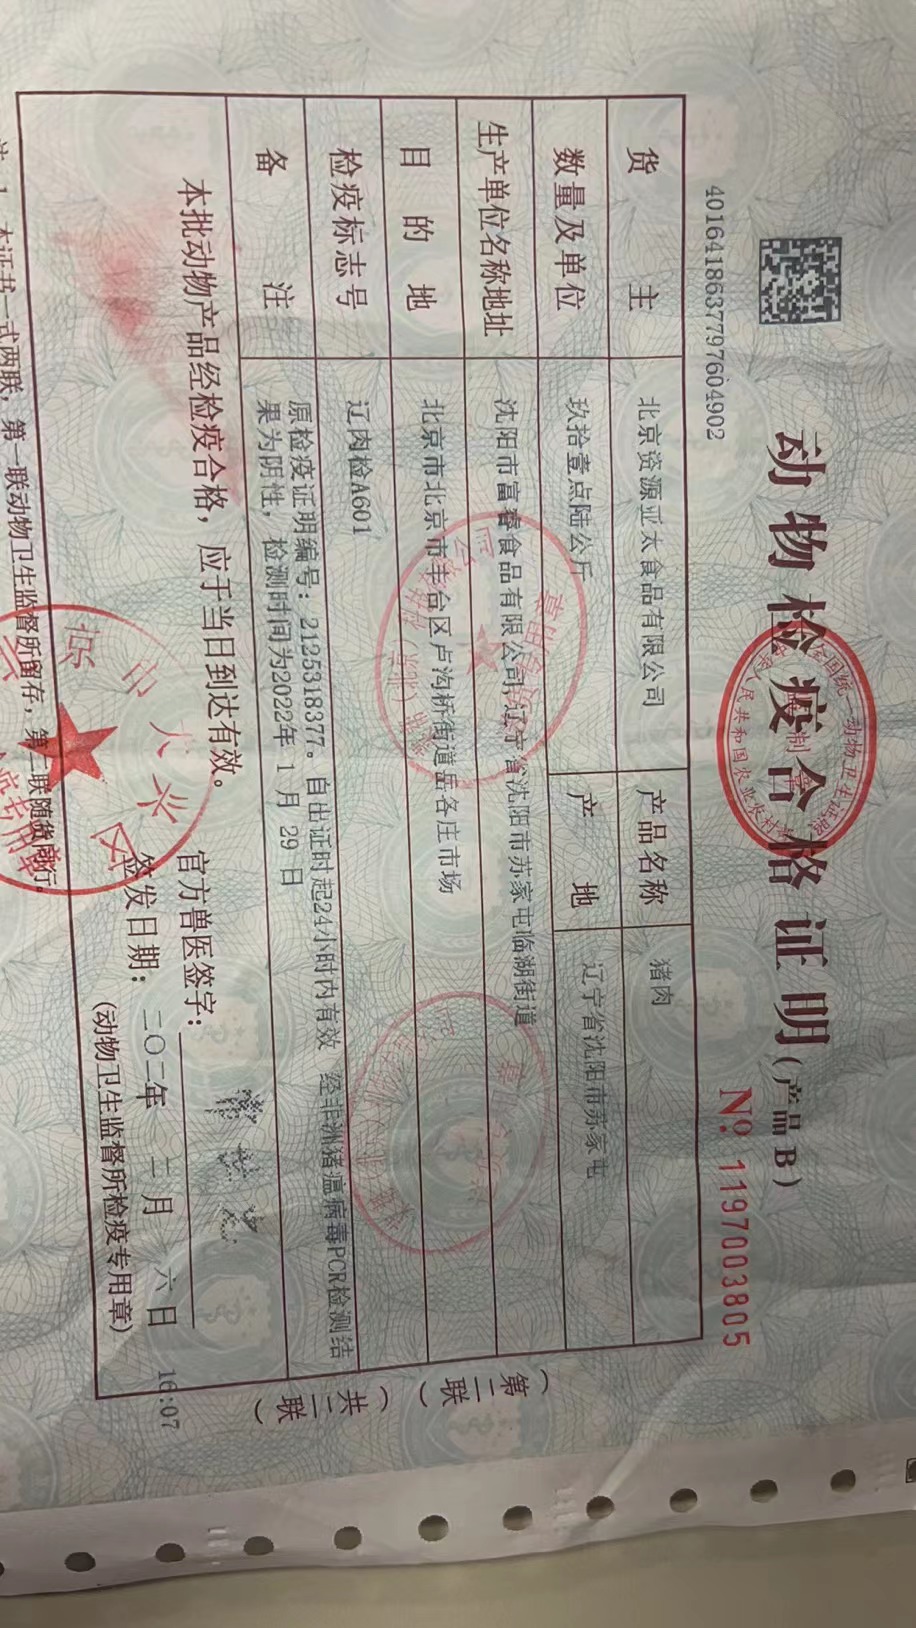 动物检疫合格证明(产品B)
4016418637797604902
№ 1197003805
货主 北京资源亚太食品有限公司 产品名称 猪肉
数量及单位 玖拾壹点陆公斤 产地 辽宁省沈阳市苏家屯
生产单位名称地址 沈阳市富睿食品有限公司,辽宁省沈阳市苏家屯临湖街道
目的地 北京市北京市丰台区卢沟桥街道岳各庄市场
检疫标志号 辽肉检A601
备注 原检疫证明编号:2125318377。自出证时起24小时内有效 经非洲猪瘟病毒PCR检测结
果为阴性,检测时间为2022年 1 月 29 日
本批动物产品经检疫合格,应于当日到达有效。
官方兽医签字:
签发日期: 二〇二年 二月 六日 16:07
(动物卫生监督所检疫专用章)
(第二联)
(共二联)
1.本证书一式两联,第一联动物卫生监督所留存,第二联随货同行。
市大兴区